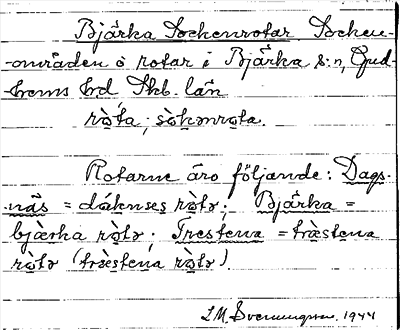 Bjärka Sockenrotar Socken-
-områden o rotar i Bjärka s:n, Gud-
hems hd Skb. län
ro̤ta, sòkənro̤ta.
Rotarne äro följande: Dags-
näs = dáksnses rò̤tə; Bjärka =
bjærka rò̤tə; Trestena = træ̀stena
rò̤tə (træ̀stena rò̤tə).
1944